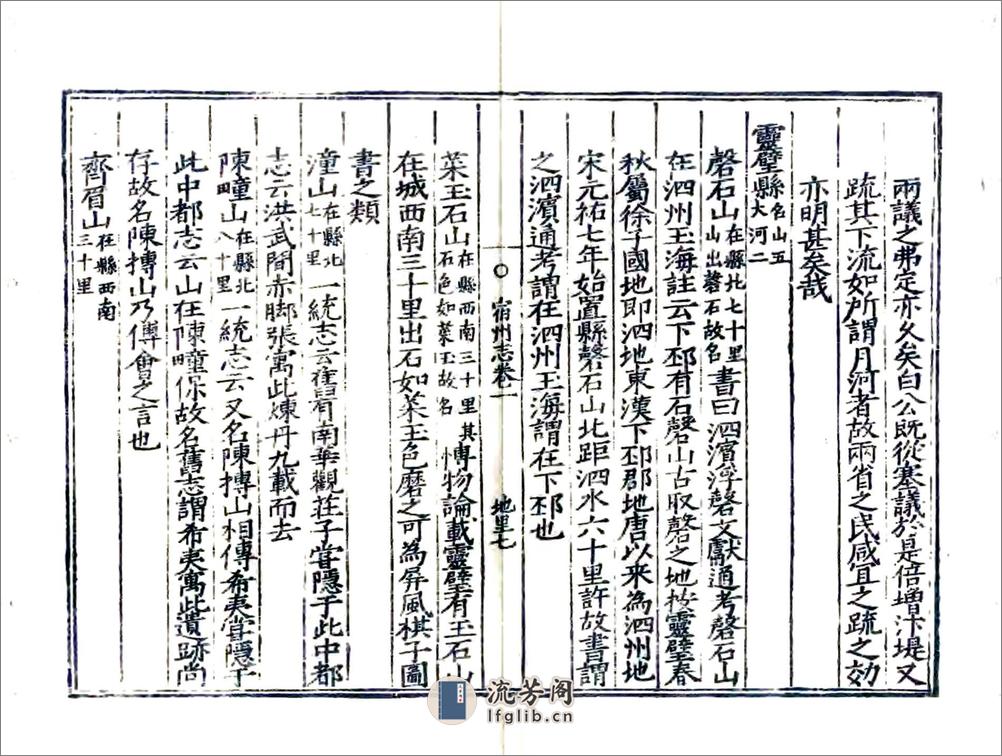 兩議之弗定亦久矣白公既從塞議於是倍增汴堤又
疏其下流如所謂月河者故兩省之民咸宜之疏之効
亦明甚矣哉
靈壁縣名山五大河二
磬石山在縣北七十里山出磬石故名書曰泗濱浮磬文獻通考磬石山
在泗州玉海註云下邳有石磬山古取磬之地按靈壁春
秋屬徐子國地即泗地東漢下邳郡地唐以来為泗州地
宋元祐七年始置縣磬石山北距泗水六十里許故書謂
之泗濱通考謂在泗州玉海謂在下邳也
宿州志卷一
地里七
菜玉石山在縣西南三十里其石色如菜玉故名博物論載靈壁有玉石山
在城西南三十里出石如菜玉色磨之可為屏風棋子圖
書之類
潼山在縣北七十里一統志云舊有南華觀莊子嘗隱于此中都
志云洪武間赤脚張寓此煉丹九載而去
陳疃山在縣北八十里一統志云又名陳摶山相傳希夷嘗隱于
此中都志云山在陳疃保故名舊志謂希夷寓此遺跡尚
存故名陳摶山乃傅會之言也
齊眉山在縣西南三十里
流芳阁
lfglib.cn